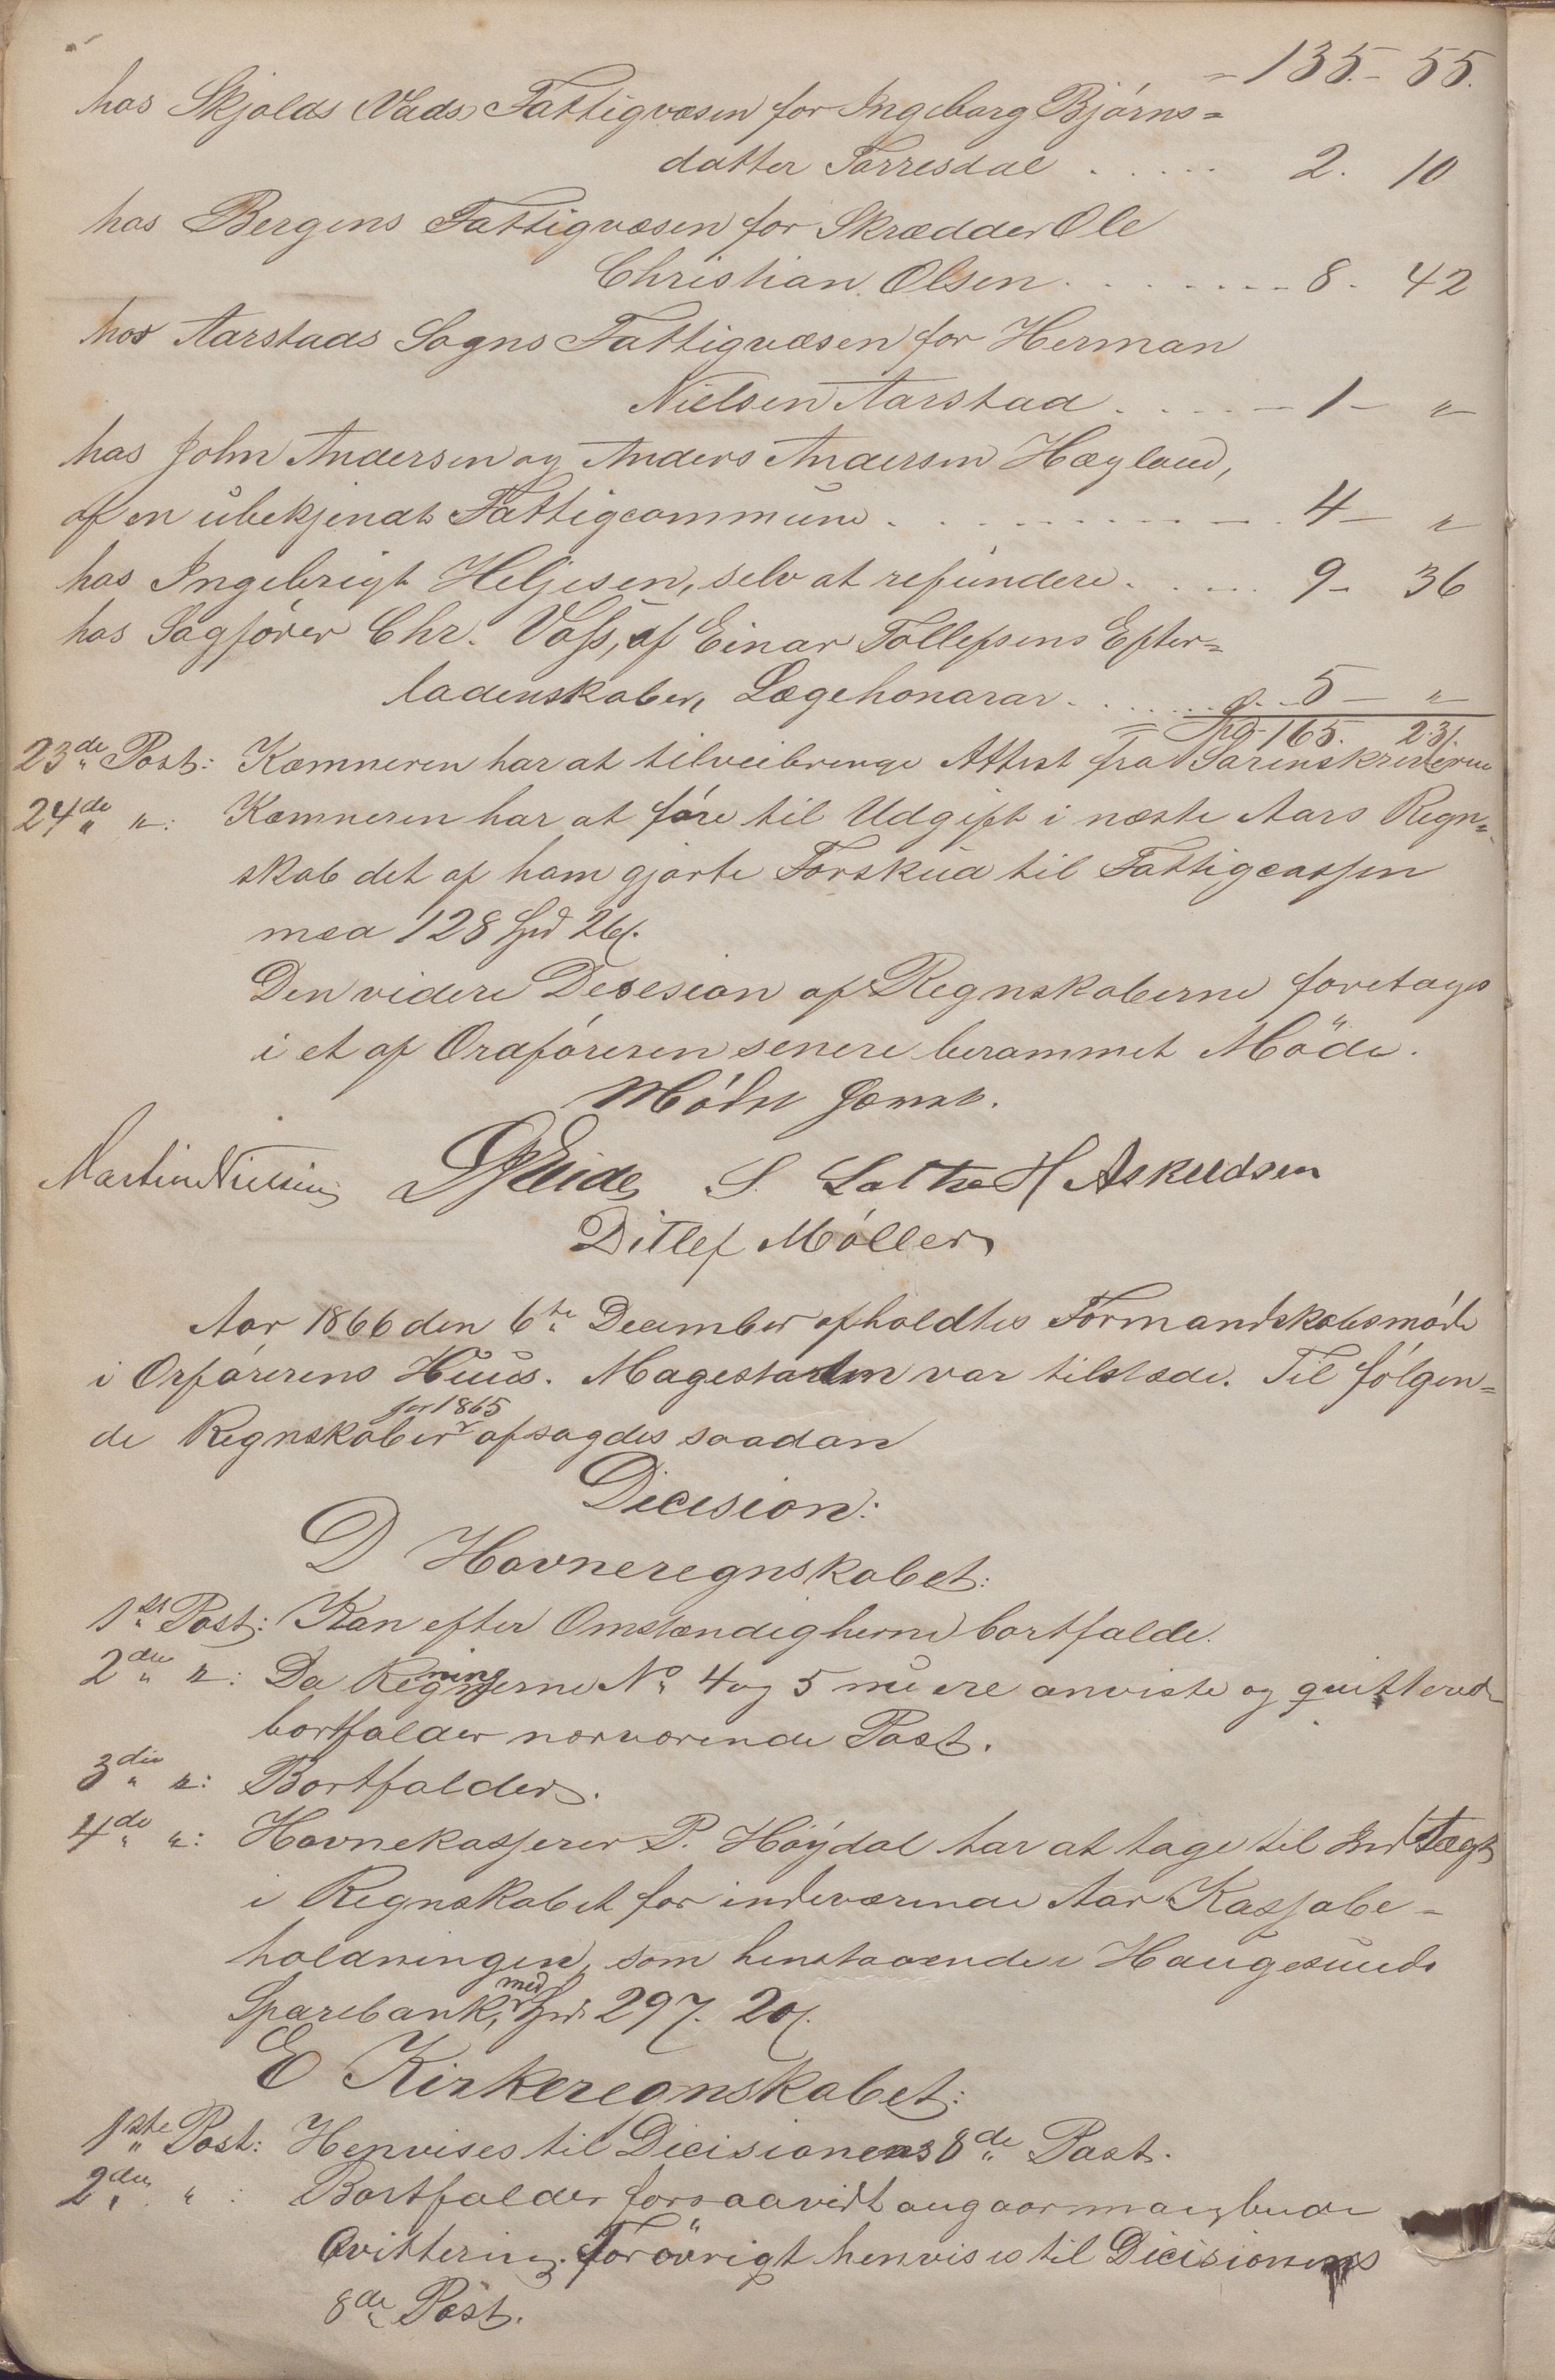 - 135. - 55.
hos Skjolds Vads Fattigvæsen for Ingeborg Björns=
datter Torresdal . . . . . 2. 10
hos Bergens Fattigvæsen for Skrædder Ole
Christian Olsen . . . . . . . . 8. 42
hos Aarstads Sogns Fattigvæsen for Herman
Nielsen Aarstad . . . . . 1 - "
hos John Andersen og Anders Andersen Høyland,
af en ubekjendt Fattigcommune . . . . . . . . . 4 - "
hos Ingebrigt Heljesen, selv at refundere . . . . . 9 - 36
hos Sagförer Chr. Voss, af Einar Tollefsens Efter=
ladenskaber, Lægehonorar . . . . . . . 5 - "
= Spd. 165. 23 ſ.
23de Post: Kæmneren har at tilveiebringe Attest fra Sorenskriveren
24de " : Kæmneren har at före til Udgift i næste Aars Regn=
skab det af ham gjorte Forskud til Fattigcassen
med 128 Spd 26 ſ.
Den videre Desesion af Regnskaberne foretages
i et af Ordföreren senere berammet Möde.
Mödet hævet.
Martin Nielsen S. Lothe H Askeldsen
Ditlef Möller
Aar 1866 den 6te December afholdtes Formandskabsmöde
i Orförerens Huus. Magestarten var tilstede. Til fölgen=
for 1865
de Regnskaber afsagdes saadan
Decision:
D Havneregnskabet:
1ste Post: Kan efter Omstændigherne bortfalde.
2den " : Da Regningerne No 4 og 5 nu ere anviste og quitterede
bortfalder nærværende Post.
3die " : Bortfalder.
4de " : Havnekasserer P. Höydal har at tage til Indtægt
i Regnskabet for indeværende Aar Kassabe-
holdningen, som henstaaende i Haugesunds
Sparebank, med Spd. 297. 20 ſ.
E Kirkeregnskabet:
1ste Post: Henvises til Decisionens 8de Post.
2den " : Bortfalder forsaavidt angaar manglende
Qvittering. Forövrigt henvises til Decisionens
8de Post.